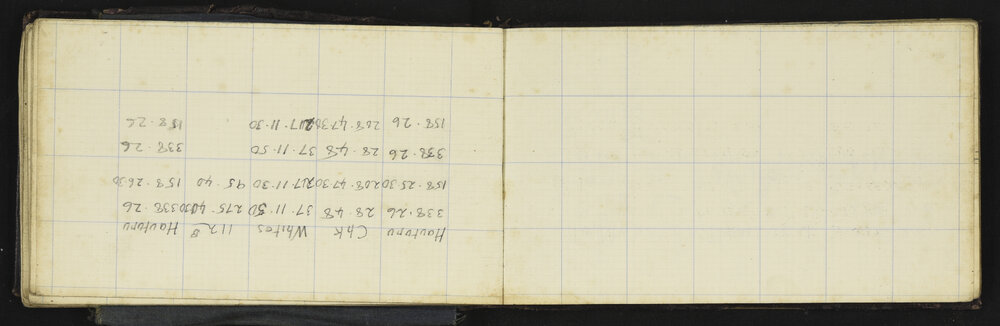 Hauturu Chk Whites 112 B Hauturu
338.26 28.48 37.11.50 275.40 30 338.26
158.25 30 208.47 30 217 11.30 95.40 158.26 30
338.26 28.48 37.11.50 338.26
158.26 208.47 30 217.11.30 158.26